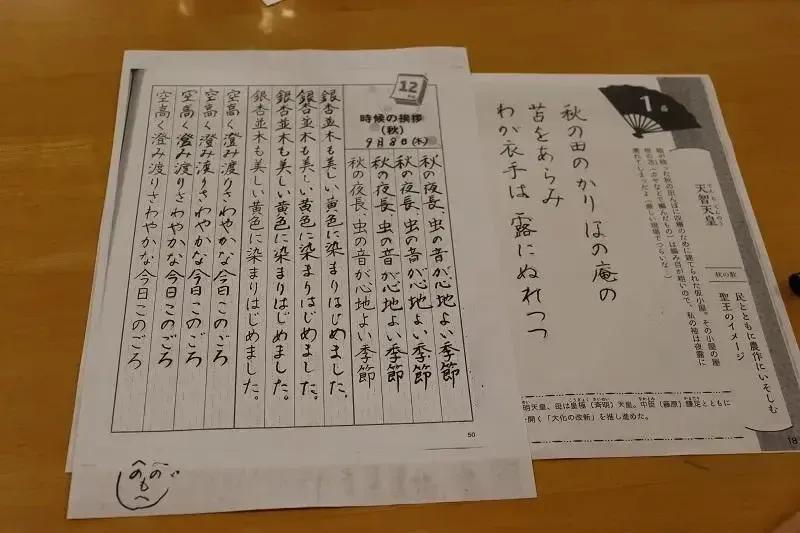 12
時候の挨拶
(秋)
9月8日(木)
秋の夜長、虫の音が心地よい季節
秋の夜長、虫の音が心地よい季節
秋の夜長、虫の音が心地よい季節
秋の夜長、虫の音が心地よい季節
銀杏並木も美しい黄色に染まりはじめました。
銀杏並木も美しい黄色に染まりはじめました。
銀杏並木も美しい黄色に染まりはじめました。
銀杏並木も美しい黄色に染まりはじめました。
空高く澄み渡りさわやかな今日このごろ
空高く澄み渡りさわやかな今日このごろ
空高く澄み渡りさわやかな今日このごろ
空高く澄み渡りさわやかな今日このごろ
50
へのへのもへ
民とともに農作にいそしむ
聖王のイメージ
秋の歌
天智天皇
秋の田んぼに収穫のために建てられた仮小屋。その小屋の屋
編んだもの)は編み目が粗いので、私の袖は夜露に
1
秋の田のかりほの庵の
苫をあらみ
わが衣手は 露にぬれつつ
明天皇、母は皇極(斉明)天皇。中臣(藤原)鎌足とともに
開く「大化の改新」を推し進めた。
18